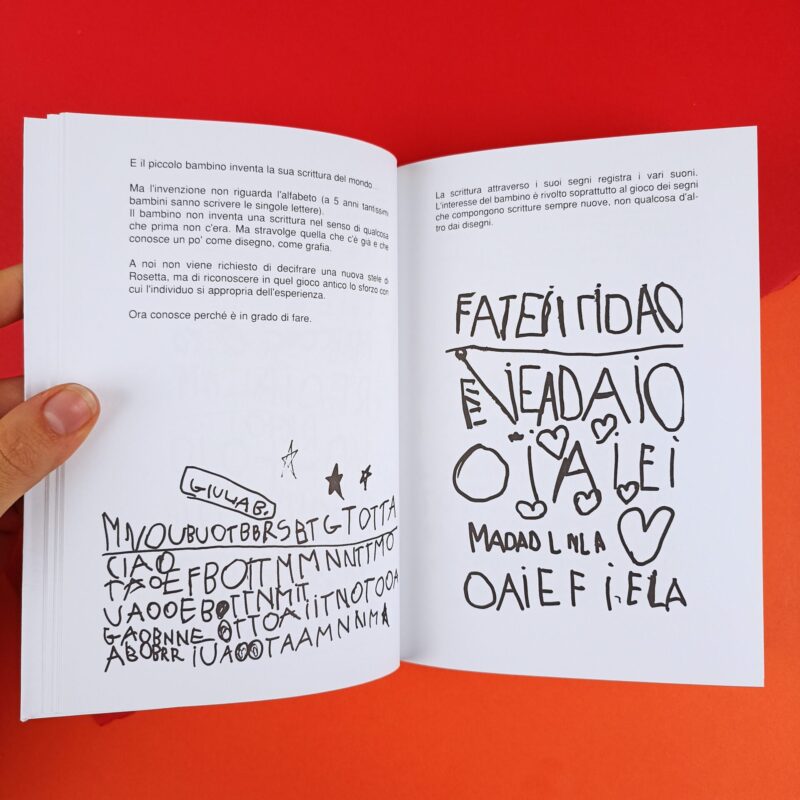 E il piccolo bambino inventa la sua scrittura del mondo...
Ma l'invenzione non riguarda l'alfabeto (a 5 anni tantissimi
bambini sanno scrivere le singole lettere).
Il bambino non inventa una scrittura nel senso di qualcosa
che prima non c'era. Ma stravolge quella che c'è già e che
conosce un po' come disegno, come grafia.
A noi non viene richiesto di decifrare una nuova stele di
Rosetta, ma di riconoscere in quel gioco antico lo sforzo con
cui l'individuo si appropria dell'esperienza.
Ora conosce perché è in grado di fare.
GIULIA B.
MNOUBUOTBBRSBTGTOTTA
CIAO
TAOEFBOTTMMNNTTMO
UAOOEBOTTNMTT
GAOBNNE OTTOAIITNOTOOOA
ABOBRR IUAOOTAAMNNMA
La scrittura attraverso i suoi segni registra i vari suoni.
L'interesse del bambino è rivolto soprattutto al gioco dei segni
che compongono scritture sempre nuove, non qualcosa d'al-
tro dai disegni.
NEADAIO
OiAiEi
MADAD
OAiEF i.ELA